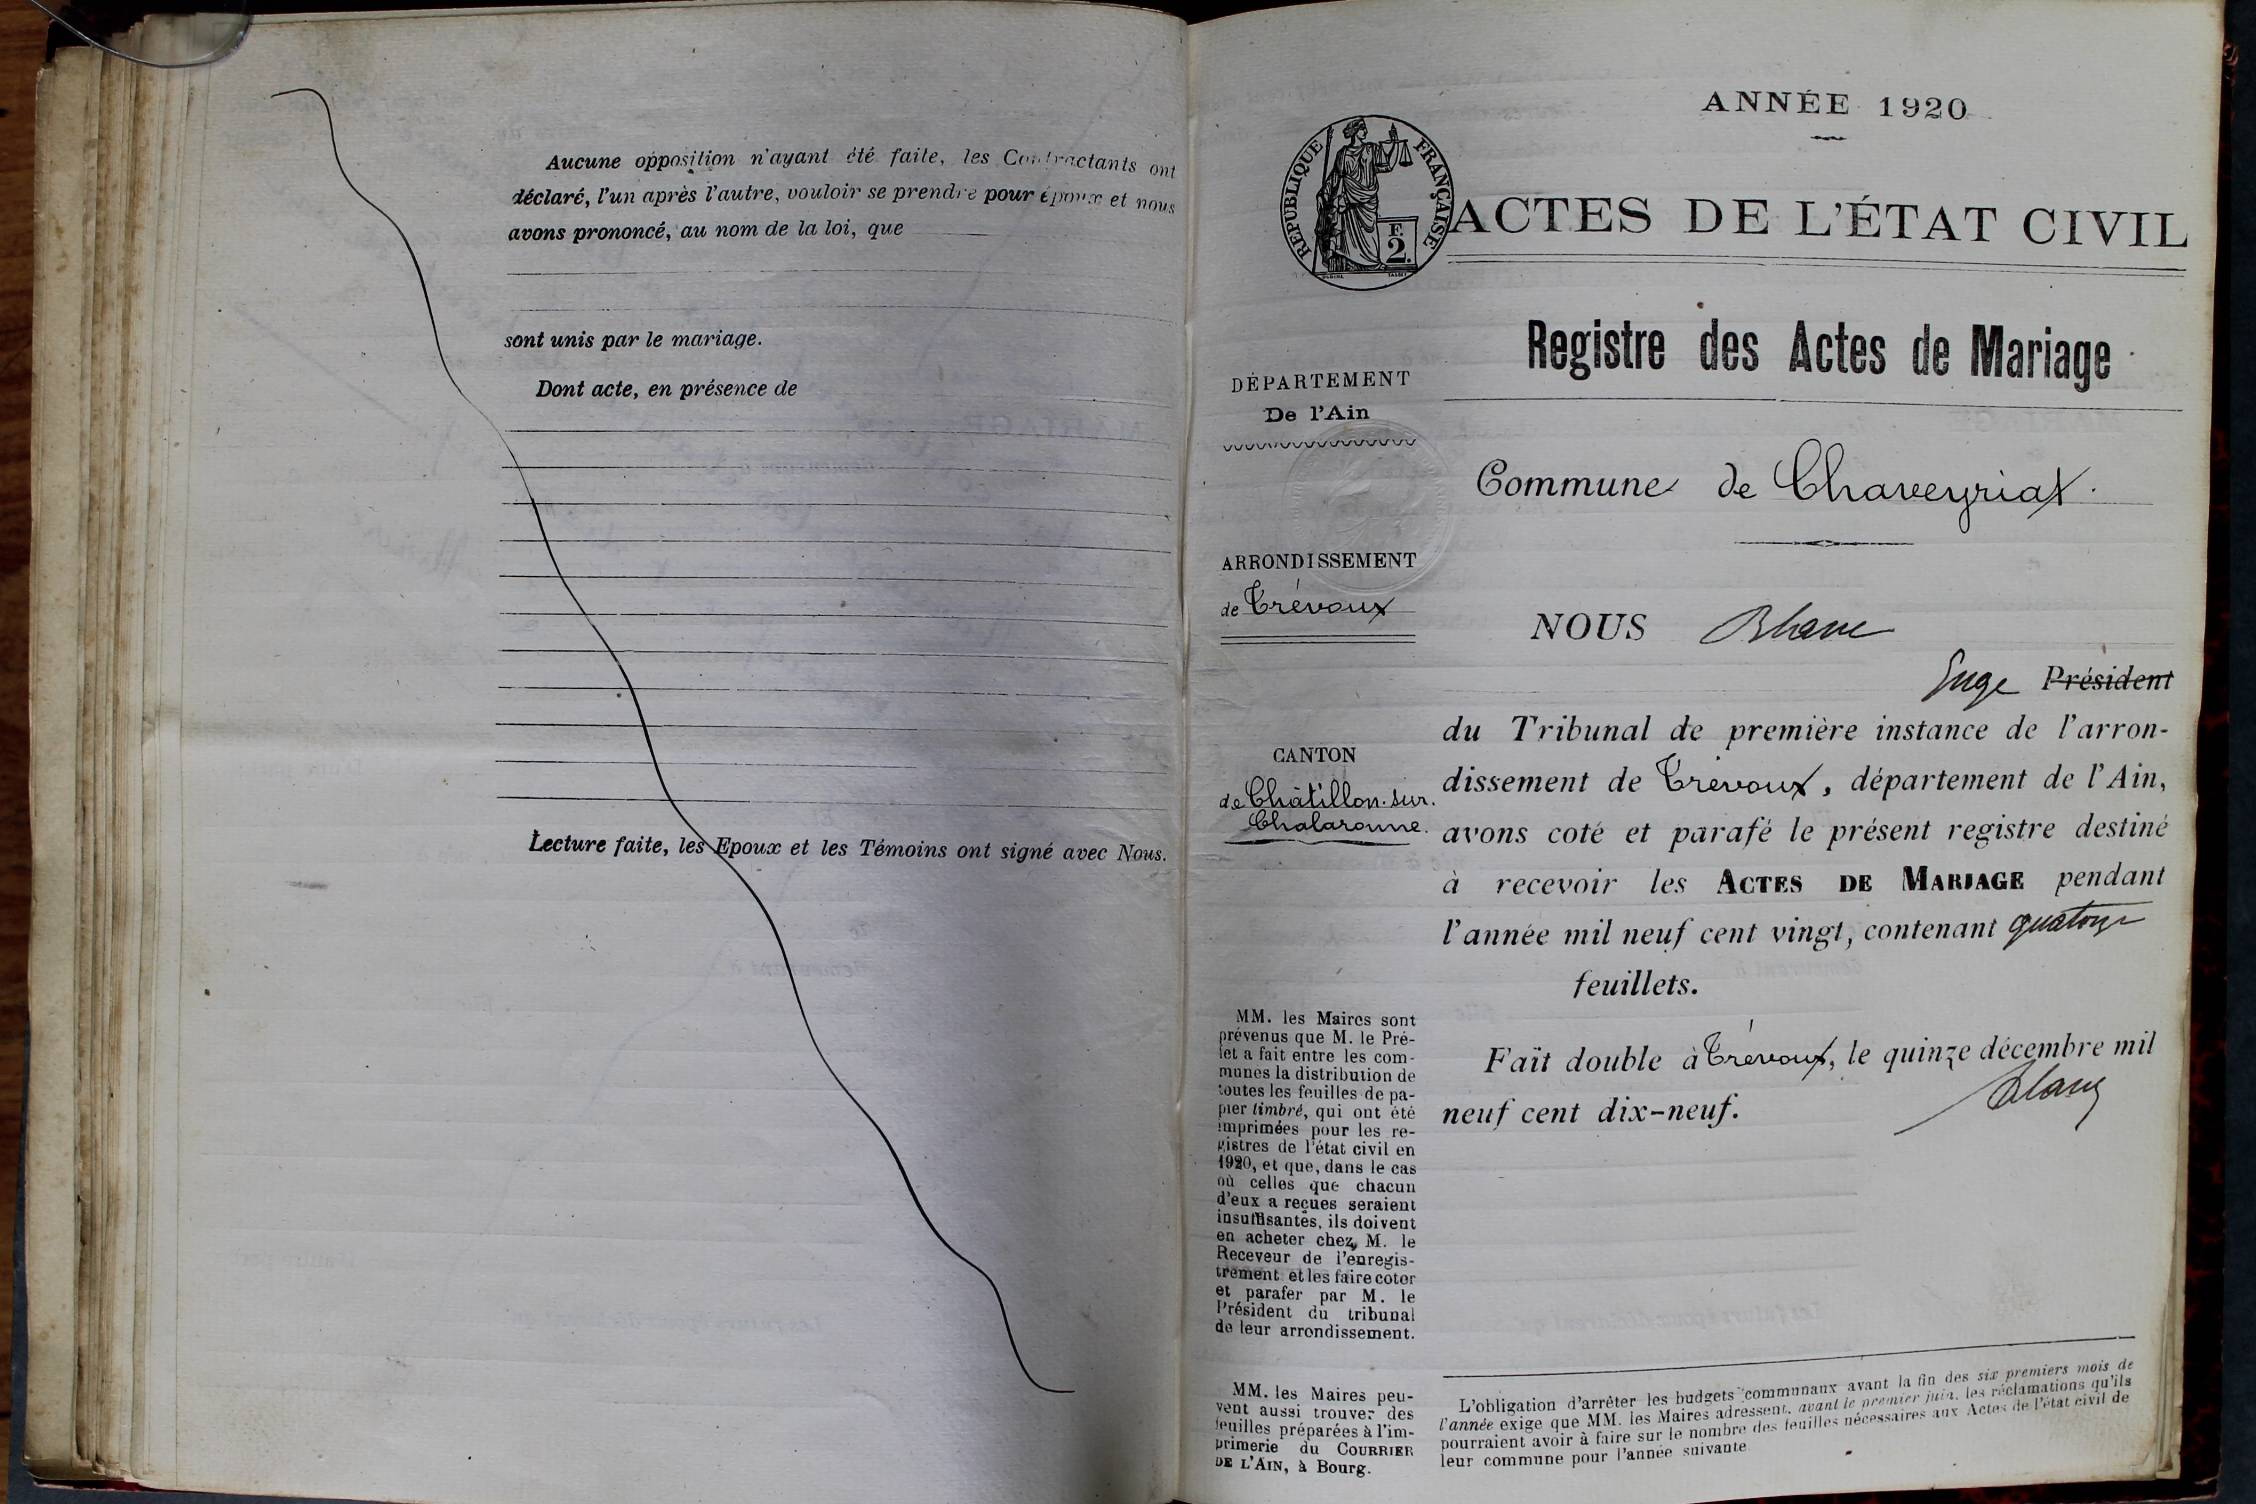 Aucune opposition n'ayant été faite, les Contractants ont
déclaré, l'un après l'autre, vouloir se prendre pour époux et nous
avons prononcé, au nom de la loi, que
sont unis par le mariage.
Dont acte, en présence de
Lecture faite, les Epoux et les Témoins ont signé avec Nous.
ANNÉE 1920
RÉPUBLIQUE FRANÇAISE
F.
2.
ACTES DE L'ÉTAT CIVIL
Registre des Actes de Mariage
DÉPARTEMENT
De l'Ain
Commune de Chaveyriat.
ARRONDISSEMENT
de Trévoux
CANTON
de Châtillon-sur-
Chalaronne.
NOUS Blanc
Juge Président
du Tribunal de première instance de l'arron-
dissement de Trévoux, département de l'Ain,
avons coté et parafé le présent registre destiné
à recevoir les ACTES DE MARIAGE pendant
l'année mil neuf cent vingt, contenant quatorze
feuillets.
Fait double à Trévoux, le quinze décembre mil
neuf cent dix-neuf.
Blanc
MM. les Maires sont
prévenus que M. le Pré-
fet a fait entre les com-
munes la distribution de
toutes les feuilles de pa-
pier timbré, qui ont été
imprimées pour les re-
gistres de l'état civil en
1920, et que, dans le cas
où celles que chacun
d'eux a reçues seraient
insuffisantes, ils doivent
en acheter chez M. le
Receveur de l'enregis-
trement et les faire coter
et parafer par M. le
Président du tribunal
de leur arrondissement.
MM. les Maires peu-
vent aussi trouver des
feuilles préparées à l'im-
primerie du COURRIER
DE L'AIN, à Bourg.
L'obligation d'arrêter les budgets communaux avant la fin des six premiers mois de
l'année exige que MM. les Maires adressent, avant le premier juin, les réclamations qu'ils
pourraient avoir à faire sur le nombre des feuilles nécessaires aux Actes de l'état civil de
leur commune pour l'année suivante